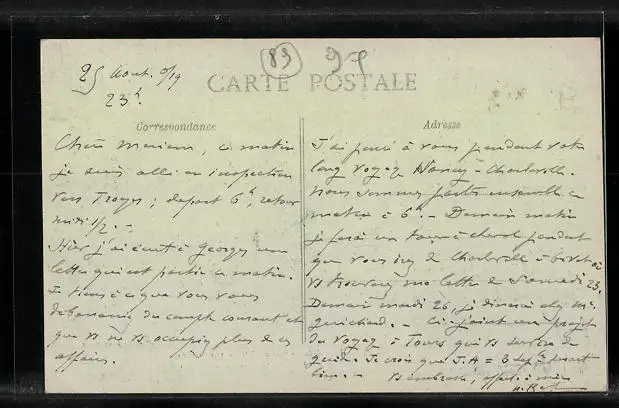 89
CARTE POSTALE
25 Aout. 0/19
23h.
Correspondance
Chère maman, ce matin
je suis allé en inspection
vers Troyes ; départ 6h, retour
midi 1/2. -
Hier j'ai écrit à Georges une
lettre qui est partie ce matin.
Je tiens à ce que vous vous
du compte courant et
que vs ne vs occupiez plus de ces
affaires.
Adresse
J'ai pensé à vous pendant votre
long voyage Nancy - Charleville.
nous sommes partis ensemble ce
matin à 6h. - Demain matin
je ferai un tour à cheval pendant
que vous irez de Charleville à où
vs trouverez ma lettre de Samedi 23.
Demain mardi 26, je dinerai chez Mr
- Ci-joint un projet
de voyage à Tours qui vs servira de
guide. Je crois que J.A = 3 sept
bien. - vs embrasse,